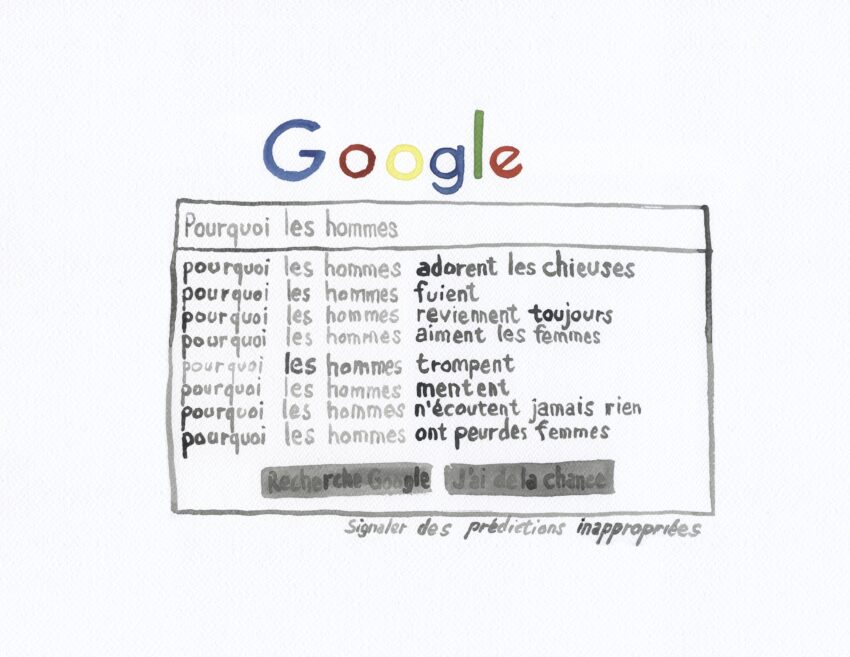 Google
Pourquoi les hommes
pourquoi les hommes adorent les chieuses
pourquoi les hommes fuient
pourquoi les hommes reviennent toujours
pourquoi les hommes aiment les femmes
pourquoi les hommes trompent
pourquoi les hommes mentent
pourquoi les hommes n'écoutent jamais rien
pourquoi les hommes ont peur des femmes
Recherche Google J'ai de la chance
Signaler des prédictions inappropriées